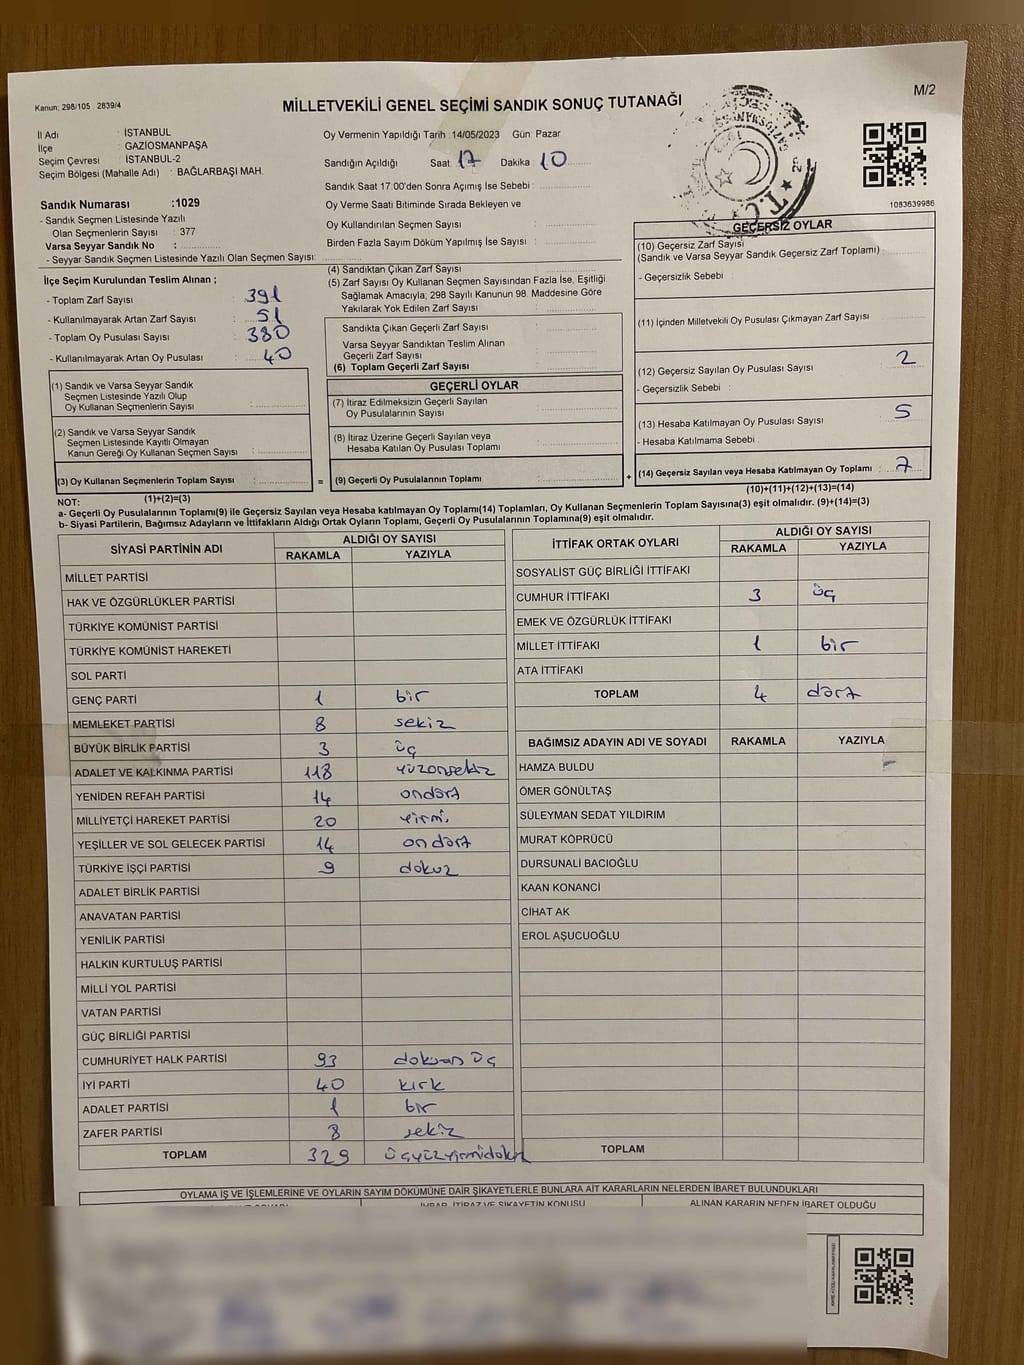 Kanun: 298/105 2839/4
MİLLETVEKİLİ GENEL SEÇİMİ SANDIK SONUÇ TUTANAĞI
M/2
İl Adı : İSTANBUL
İlçe : GAZİOSMANPAŞA
Seçim Çevresi : İSTANBUL-2
Seçim Bölgesi (Mahalle Adı) : BAĞLARBAŞI MAH.
Oy Vermenin Yapıldığı Tarih :14/05/2023 Gün: Pazar
Sandığın Açıldığı Saat: 17 Dakika: 10
Sandık Saat 17:00'den Sonra Açımış İse Sebebi :
Oy Verme Saati Bitiminde Sırada Bekleyen ve
Oy Kullandırılan Seçmen Sayısı :
Birden Fazla Sayım Döküm Yapılmış İse Sayısı :
T.C.
1083639986
Sandık Numarası :1029
- Sandık Seçmen Listesinde Yazılı
Olan Seçmenlerin Sayısı : 377
Varsa Seyyar Sandık No :
- Seyyar Sandık Seçmen Listesinde Yazılı Olan Seçmen Sayısı:
İlçe Seçim Kurulundan Teslim Alınan ;
- Toplam Zarf Sayısı : 391
- Kullanılmayarak Artan Zarf Sayısı : 51
- Toplam Oy Pusulası Sayısı : 380
- Kullanılmayarak Artan Oy Pusulası : 40
(1) Sandık ve Varsa Seyyar Sandık
Seçmen Listesinde Yazılı Olup
Oy Kullanan Seçmenlerin Sayısı :
(2) Sandık ve Varsa Seyyar Sandık
Seçmen Listesinde Kayıtlı Olmayan
Kanun Gereği Oy Kullanan Seçmen Sayısı :
(3) Oy Kullanan Seçmenlerin Toplam Sayısı :
(1)+(2)=(3)
(4) Sandıktan Çıkan Zarf Sayısı :
(5) Zarf Sayısı Oy Kullanan Seçmen Sayısından Fazla İse, Eşitliği
Sağlamak Amacıyla, 298 Sayılı Kanunun 98. Maddesine Göre
Yakılarak Yok Edilen Zarf Sayısı :
Sandıkta Çıkan Geçerli Zarf Sayısı :
Varsa Seyyar Sandıktan Teslim Alınan
Geçerli Zarf Sayısı :
(6) Toplam Geçerli Zarf Sayısı :
=
GEÇERLİ OYLAR
(7) İtiraz Edilmeksizin Geçerli Sayılan
Oy Pusulalarının Sayısı :
(8) İtiraz Üzerine Geçerli Sayılan veya
Hesaba Katılan Oy Pusulası Toplamı :
(9) Geçerli Oy Pusulalarının Toplamı :
+
GEÇERSİZ OYLAR
(10) Geçersiz Zarf Sayısı
(Sandık ve Varsa Seyyar Sandık Geçersiz Zarf Toplamı) :
- Geçersizlik Sebebi :
(11) İçinden Milletvekili Oy Pusulası Çıkmayan Zarf Sayısı :
(12) Geçersiz Sayılan Oy Pusulası Sayısı : 2
- Geçersizlik Sebebi :
(13) Hesaba Katılmayan Oy Pusulası Sayısı : 5
- Hesaba Katılmama Sebebi :
(14) Geçersiz Sayılan veya Hesaba Katılmayan Oy Toplamı : 7
(10)+(11)+(12)+(13)=(14)
NOT:
a- Geçerli Oy Pusulalarının Toplamı(9) ile Geçersiz Sayılan veya Hesaba katılmayan Oy Toplamı(14) Toplamları, Oy Kullanan Seçmenlerin Toplam Sayısına(3) eşit olmalıdır. (9)+(14)=(3)
b- Siyasi Partilerin, Bağımsız Adayların ve İttifakların Aldığı Ortak Oyların Toplamı, Geçerli Oy Pusulalarının Toplamına(9) eşit olmalıdır.
SİYASİ PARTİNİN ADI ALDIĞI OY SAYISI
RAKAMLA YAZIYLA
MİLLET PARTİSİ
HAK VE ÖZGÜRLÜKLER PARTİSİ
TÜRKİYE KOMÜNİST PARTİSİ
TÜRKİYE KOMÜNİST HAREKETİ
SOL PARTİ
GENÇ PARTİ 1 bir
MEMLEKET PARTİSİ 8 sekiz
BÜYÜK BİRLİK PARTİSİ 3 üç
ADALET VE KALKINMA PARTİSİ 118 yüzonsekiz
YENİDEN REFAH PARTİSİ 14 ondört
MİLLİYETÇİ HAREKET PARTİSİ 20 yirmi
YEŞİLLER VE SOL GELECEK PARTİSİ 14 ondört
TÜRKİYE İŞÇİ PARTİSİ 9 dokuz
ADALET BİRLİK PARTİSİ
ANAVATAN PARTİSİ
YENİLİK PARTİSİ
HALKIN KURTULUŞ PARTİSİ
MİLLİ YOL PARTİSİ
VATAN PARTİSİ
GÜÇ BİRLİĞİ PARTİSİ
CUMHURİYET HALK PARTİSİ 93 doksan üç
İYİ PARTİ 40 kırk
ADALET PARTİSİ 1 bir
ZAFER PARTİSİ 8 sekiz
TOPLAM 329 üçyüzyirmidokuz
İTTİFAK ORTAK OYLARI ALDIĞI OY SAYISI
RAKAMLA YAZIYLA
SOSYALİST GÜÇ BİRLİĞİ İTTİFAKI
CUMHUR İTTİFAKI 3 üç
EMEK VE ÖZGÜRLÜK İTTİFAKI
MİLLET İTTİFAKI 1 bir
ATA İTTİFAKI
TOPLAM 4 dört
BAĞIMSIZ ADAYIN ADI VE SOYADI RAKAMLA YAZIYLA
HAMZA BULDU
ÖMER GÖNÜLTAŞ
SÜLEYMAN SEDAT YILDIRIM
MURAT KÖPRÜCÜ
DURSUNALİ BACIOĞLU
KAAN KONANCİ
CİHAT AK
EROL AŞUCUOĞLU
TOPLAM
OYLAMA İŞ VE İŞLEMLERİNE VE OYLARIN SAYIM DÖKÜMÜNE DAİR ŞİKAYETLERLE BUNLARA AİT KARARLARIN NELERDEN İBARET BULUNDUKLARI
İHBAR, İTİRAZ VE ŞİKAYETİN KONUSU ALINAN KARARIN NEDEN İBARET OLDUĞU